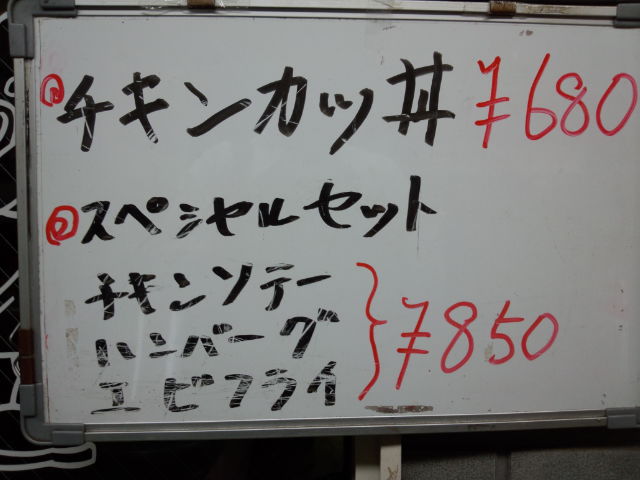 ① チキンカツ丼 ¥680
② スペシャルセット
チキンソテー
ハンバーグ
エビフライ
¥850